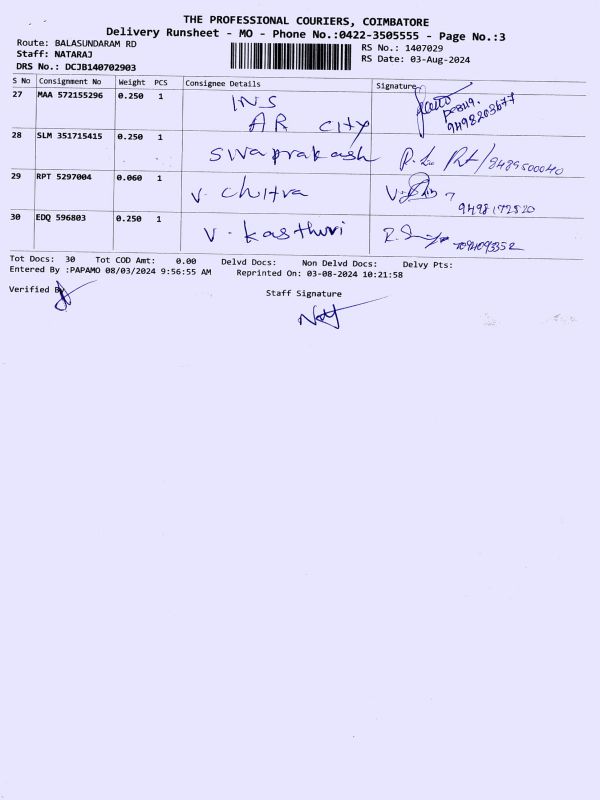 THE PROFESSIONAL COURIERS, COIMBATORE
Delivery Runsheet - MO - Phone No.:0422-3505555 - Page No.:3
Route: BALASUNDARAM RD RS No.: 1407029
Staff: NATARAJ RS Date: 03-Aug-2024
DRS No.: DCJB140702903
S No Consignment No Weight PCS Consignee Details Signature
27 MAA 572155296 0.250 1 INS
AR CITY
9498203677
28 SLM 351715415 0.250 1 Swaprakash
29 RPT 5297004 0.060 1 V. Chitra
9498172520
30 EDQ 596803 0.250 1 V. Kasthuri
Tot Docs: 30 Tot COD Amt: 0.00 Delvd Docs: Non Delvd Docs: Delvy Pts:
Entered By :PAPAMO 08/03/2024 9:56:55 AM Reprinted On: 03-08-2024 10:21:58
Verified By
Staff Signature